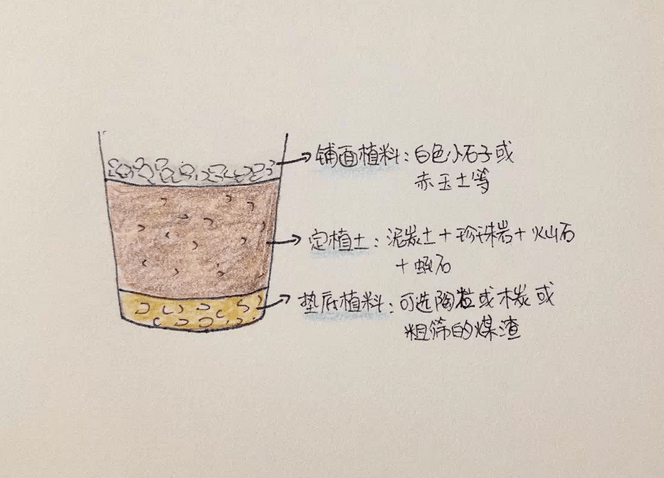 铺面植料：白色小石子或
赤玉土等
定植土：泥炭土+珍珠岩+火山石
+蛭石
垫底植料：可选陶粒或木炭或
粗筛的煤渣